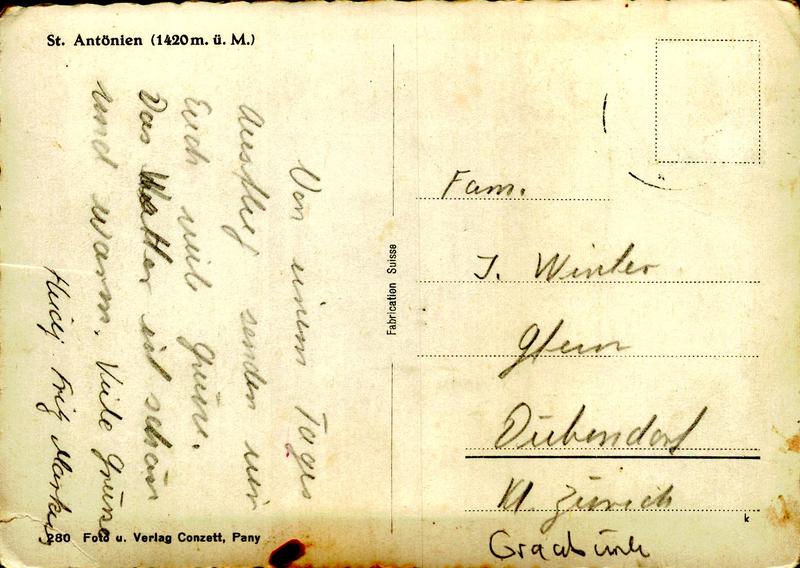 St. Antönien (1420 m. ü. M.)
Von einem Tages
Ausflug senden wir
Euch viele Grüsse.
Das Wetter ist schön
und warm. Viele Grüsse
Heidj Fritz Markus
280 Foto u. Verlag Conzett, Pany
Fabrication Suisse
Fam.
J. Winter
Dübendorf
Kt. Zürich
k